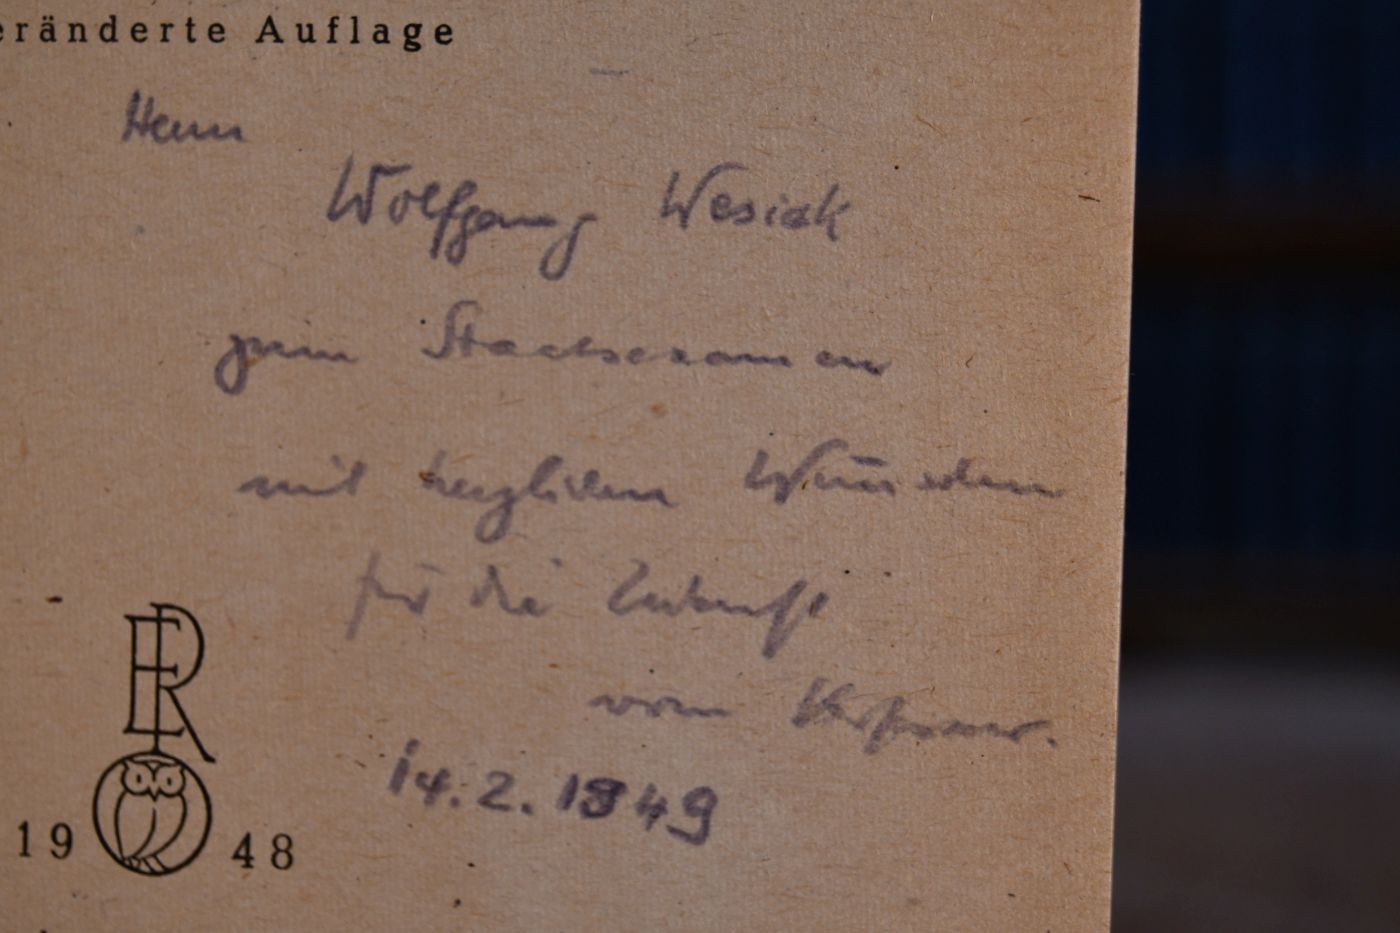 eränderte Auflage
Herrn
Wolfgang Wesiak
zum Staatsexamen
mit herzlichen Wünschen
für die Zukunft
vom Verfasser.
14.2.1949
ER
19 48